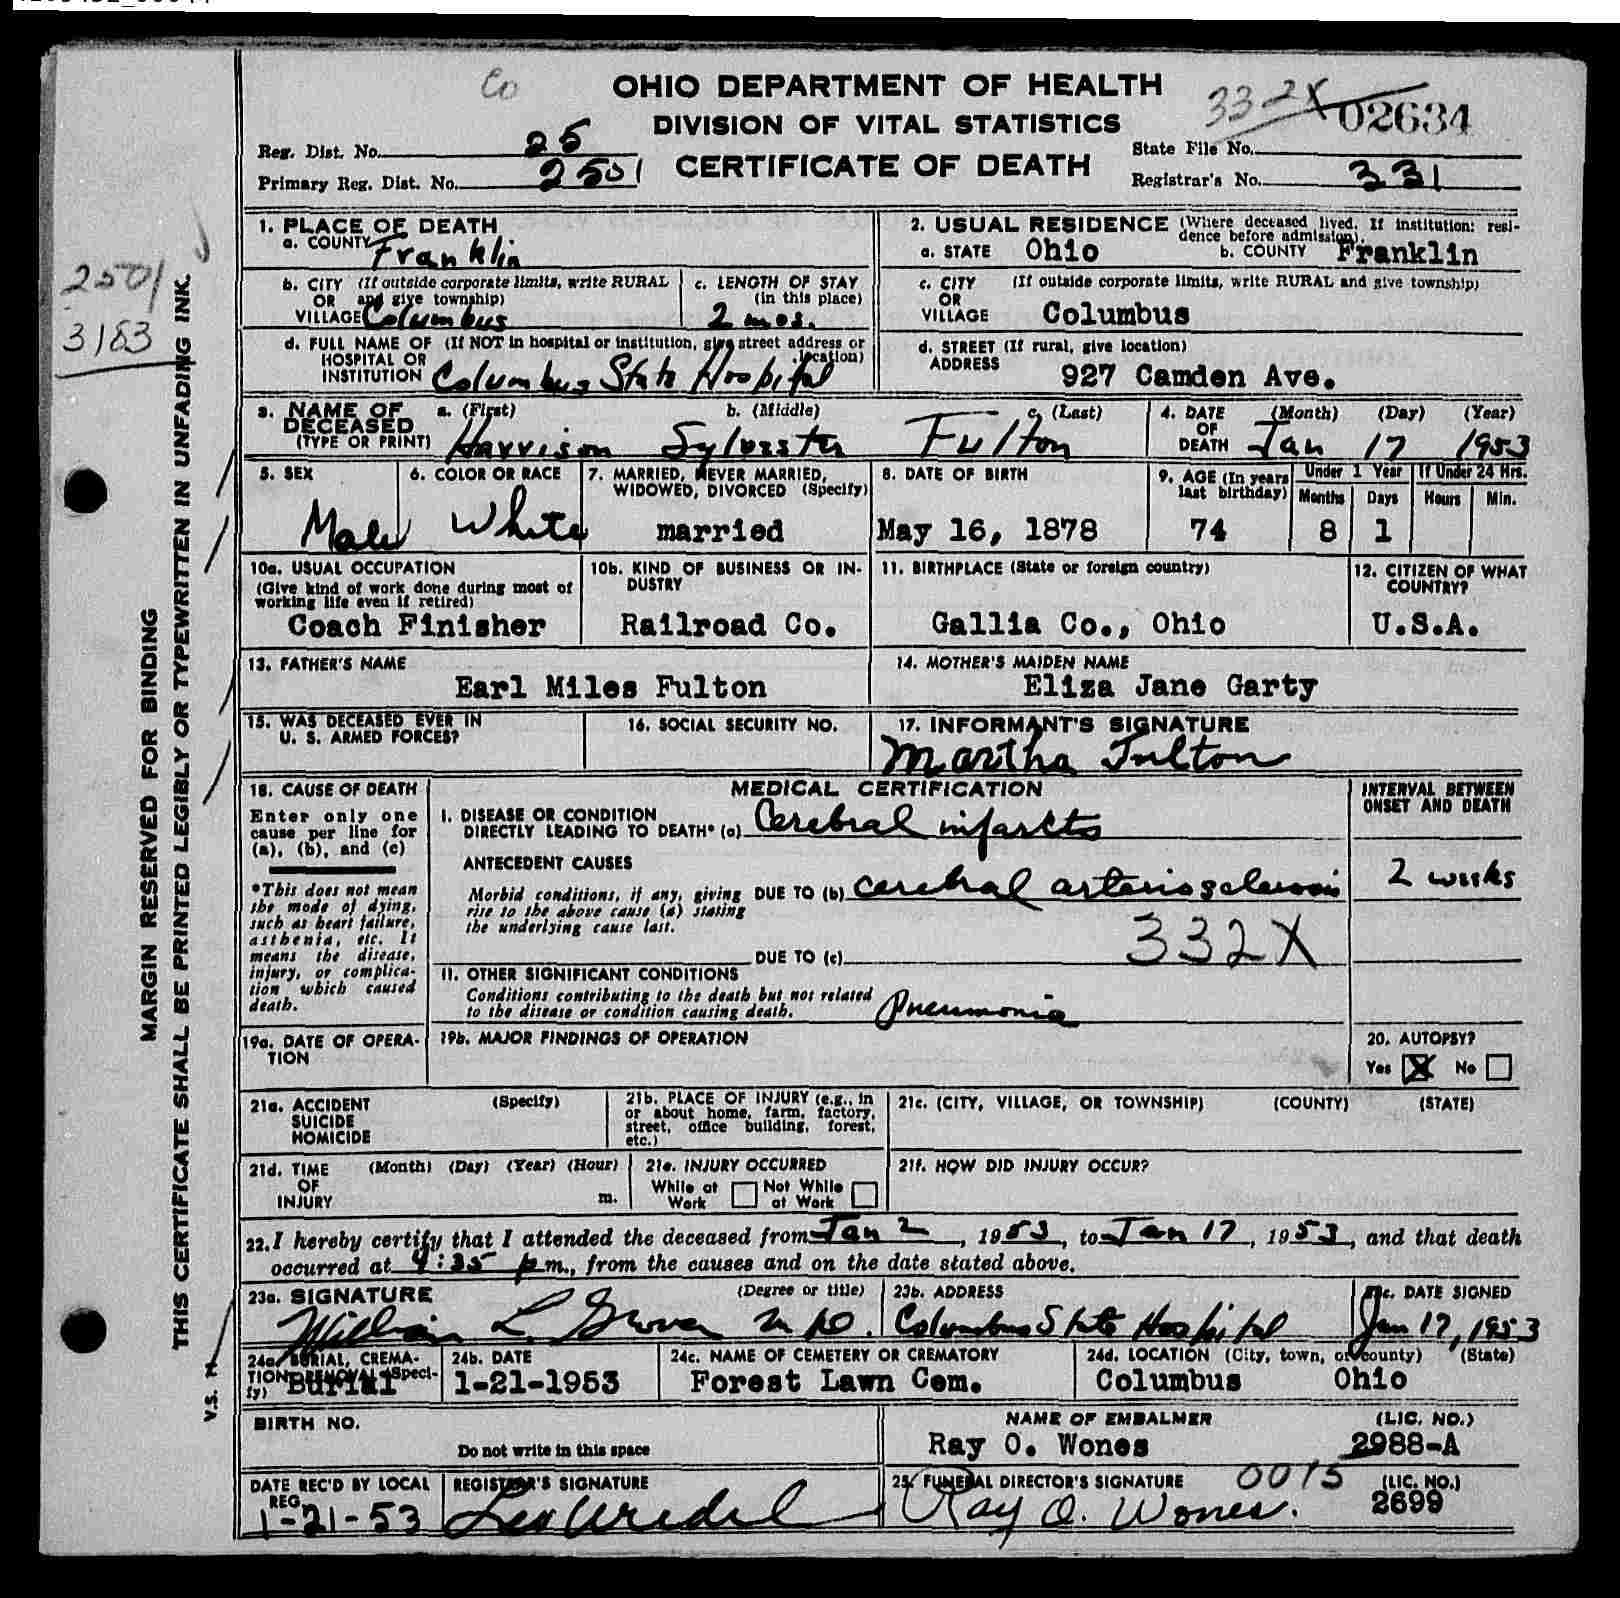 Co
OHIO DEPARTMENT OF HEALTH
DIVISION OF VITAL STATISTICS
CERTIFICATE OF DEATH
332X
02634
Reg. Dist. No. 25
Primary Reg. Dist. No. 2501
State File No.
Registrar's No. 331
2501
3183
MARGIN RESERVED FOR BINDING
THIS CERTIFICATE SHALL BE PRINTED LEGIBLY OR TYPEWRITTEN IN UNFADING INK.
V.S.
1. PLACE OF DEATH
a. COUNTY Franklin
b. CITY (If outside corporate limits, write RURAL
OR and give township)
VILLAGE Columbus
c. LENGTH OF STAY
(in this place)
2 mos.
d. FULL NAME OF (If NOT in hospital or institution, give street address or
HOSPITAL OR location)
INSTITUTION Columbus State Hospital
2. USUAL RESIDENCE (Where deceased lived. If institution: resi-
dence before admission).
a. STATE Ohio b. COUNTY Franklin
c. CITY (If outside corporate limits, write RURAL and give township)
OR
VILLAGE Columbus
d. STREET (If rural, give location)
ADDRESS
927 Camden Ave.
3. NAME OF a. (First) b. (Middle) c. (Last)
DECEASED
(TYPE OR PRINT) Harrison Sylvester Fulton
4. DATE (Month) (Day) (Year)
OF
DEATH Jan 17 1953
5. SEX
Male
6. COLOR OR RACE
White
7. MARRIED, NEVER MARRIED,
WIDOWED, DIVORCED (Specify)
married
8. DATE OF BIRTH
May 16, 1878
9. AGE (In years
last birthday)
74
Under 1 Year
Months Days
8 1
If Under 24 Hrs.
Hours Min.
10a. USUAL OCCUPATION
(Give kind of work done during most of
working life even if retired)
Coach Finisher
10b. KIND OF BUSINESS OR IN-
DUSTRY
Railroad Co.
11. BIRTHPLACE (State or foreign country)
Gallia Co., Ohio
12. CITIZEN OF WHAT
COUNTRY?
U.S.A.
13. FATHER'S NAME
Earl Miles Fulton
14. MOTHER'S MAIDEN NAME
Eliza Jane Garty
15. WAS DECEASED EVER IN
U. S. ARMED FORCES?
16. SOCIAL SECURITY NO.
17. INFORMANT'S SIGNATURE
Martha Fulton
18. CAUSE OF DEATH
Enter only one
cause per line for
(a), (b), and (c)
*This does not mean
the mode of dying,
such as heart failure,
asthenia, etc. It
means the disease,
injury, or complica-
tion which caused
death.
MEDICAL CERTIFICATION
I. DISEASE OR CONDITION
DIRECTLY LEADING TO DEATH* (a) Cerebral infarcts
ANTECEDENT CAUSES
Morbid conditions, if any, giving DUE TO (b) cerebral arteriosclerosis
rise to the above cause (a) stating
the underlying cause last.
332X
DUE TO (c)
II. OTHER SIGNIFICANT CONDITIONS
Conditions contributing to the death but not related
to the disease or condition causing death. Pneumonia
INTERVAL BETWEEN
ONSET AND DEATH
2 weeks
19a. DATE OF OPERA-
TION
19b. MAJOR FINDINGS OF OPERATION
20. AUTOPSY?
Yes X No
21a. ACCIDENT (Specify)
SUICIDE
HOMICIDE
21b. PLACE OF INJURY (e.g., in
or about home, farm, factory,
street, office building, forest,
etc.)
21c. (CITY, VILLAGE, OR TOWNSHIP) (COUNTY) (STATE)
21d. TIME (Month) (Day) (Year) (Hour)
OF
INJURY m.
21e. INJURY OCCURRED
While at Not While
Work at Work
21f. HOW DID INJURY OCCUR?
22. I hereby certify that I attended the deceased from Jan 2, 1953, to Jan 17, 1953, and that death
occurred at 4:35 pm., from the causes and on the date stated above.
23a. SIGNATURE (Degree or title)
William L. Grover MD.
23b. ADDRESS
Columbus State Hospital
23c. DATE SIGNED
Jan 17, 1953
24a. BURIAL, CREMA-
TION, REMOVAL (Speci-
fy) Burial
24b. DATE
1-21-1953
24c. NAME OF CEMETERY OR CREMATORY
Forest Lawn Cem.
24d. LOCATION (City, town, or county) (State)
Columbus Ohio
BIRTH NO.
Do not write in this space
NAME OF EMBALMER (LIC. NO.)
Ray O. Wones 2988-A
DATE REC'D BY LOCAL
REG.
1-21-53
REGISTRAR'S SIGNATURE
25. FUNERAL DIRECTOR'S SIGNATURE 0015 (LIC. NO.)
Ray O. Wones. 2699